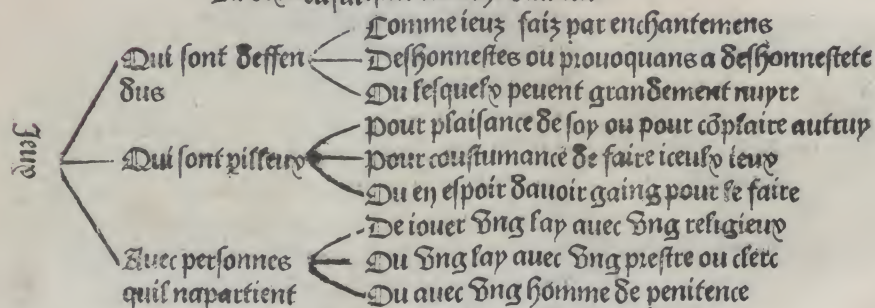 Jeux
Qui sont deffen
dus
Comme ieuz faiz par enchantemens
Deshonnestes ou prouoquans a deshonnestete
Ou lesquelx peuent grandement nuyre
Qui sont pilleux
Pour plaisance de soy ou pour cõplaire autruy
Pour coustumance de faire iceulx ieux
Ou en espoir dauoir gaing pour le faire
Auec personnes
quil napartient
De iouer vng lay auec vng religieux
Ou vng lay auec vng prestre ou clerc
Ou auec vng homme de penitence